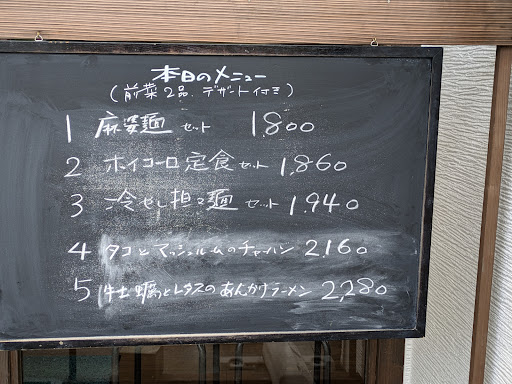 本日のメニュー
(前菜2品、デザート付き)
1 麻婆麺 セット 1,800
2 ホイコーロ定食セット 1,860
3 冷やし担々麺 セット 1,940
4 タコとマッシュルームのチャーハン 2,160
5 牡蠣とレタスのあんかけラーメン 2,280